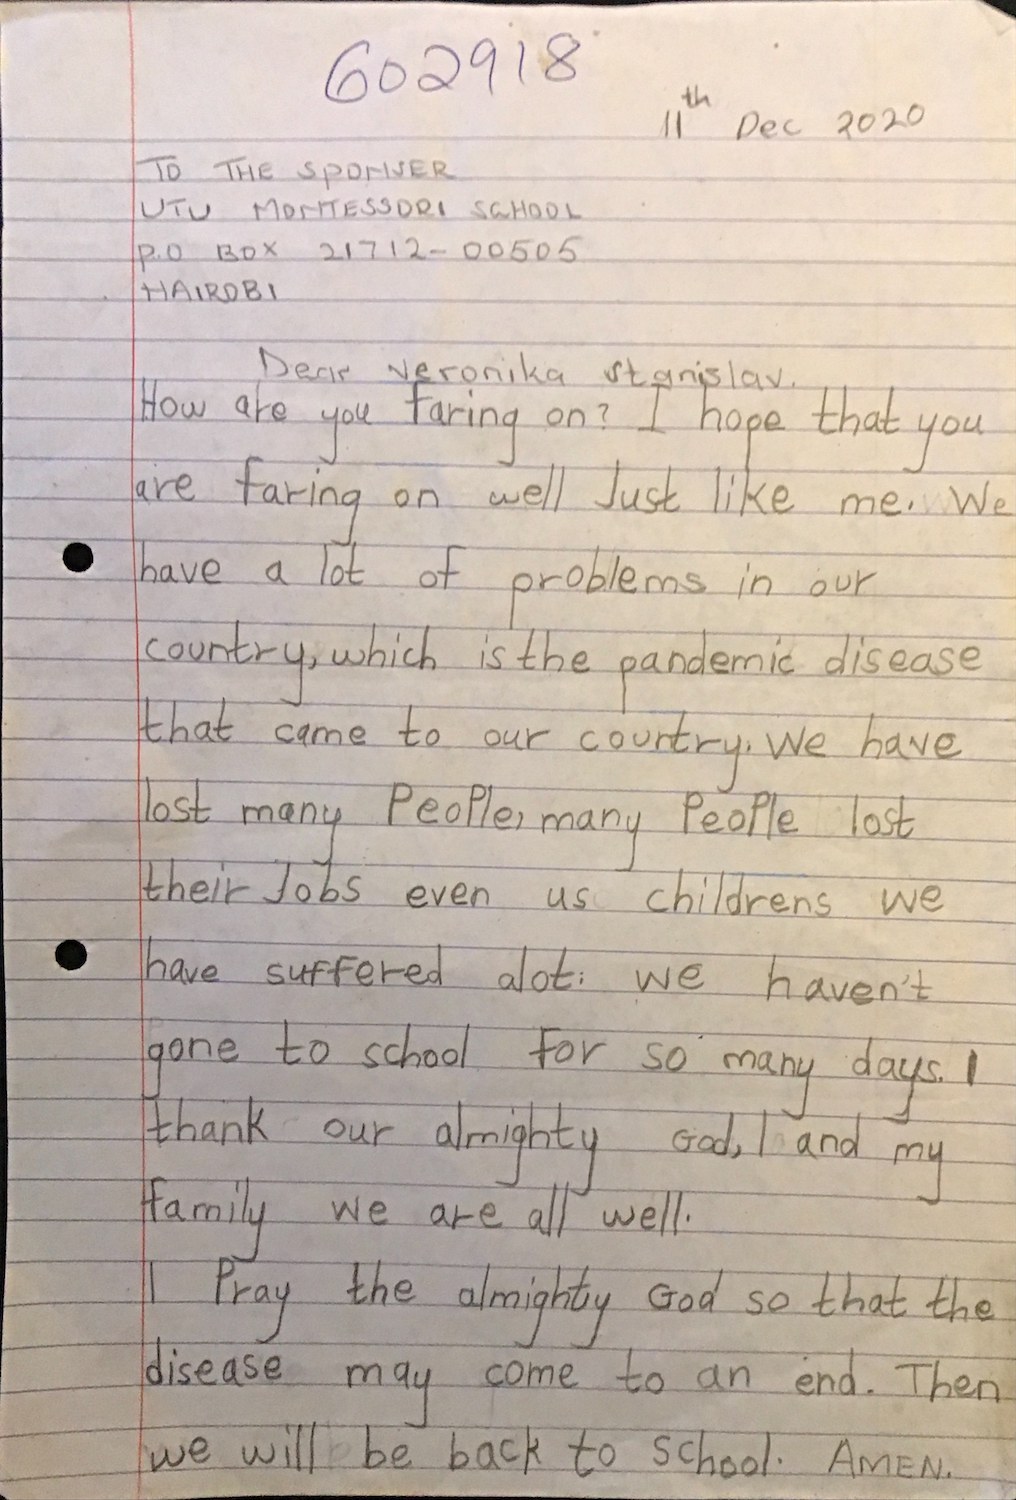 602918
11th Dec 2020
TO THE SPONSER
UTU MONTESSORI SCHOOL
P.O BOX 21712-00505
NAIROBI
Dear Veronika Stanislav.
How are you faring on? I hope that you
are faring on well Just like me. We
have a lot of problems in our
country, which is the pandemic disease
that came to our country. We have
lost many People, many People lost
their Jobs even us childrens we
have suffered alot. we haven't
gone to school for so many days. I
thank our almighty God, I and my
family we are all well.
I Pray the almighty God so that the
disease may come to an end. Then
we will be back to school. AMEN.